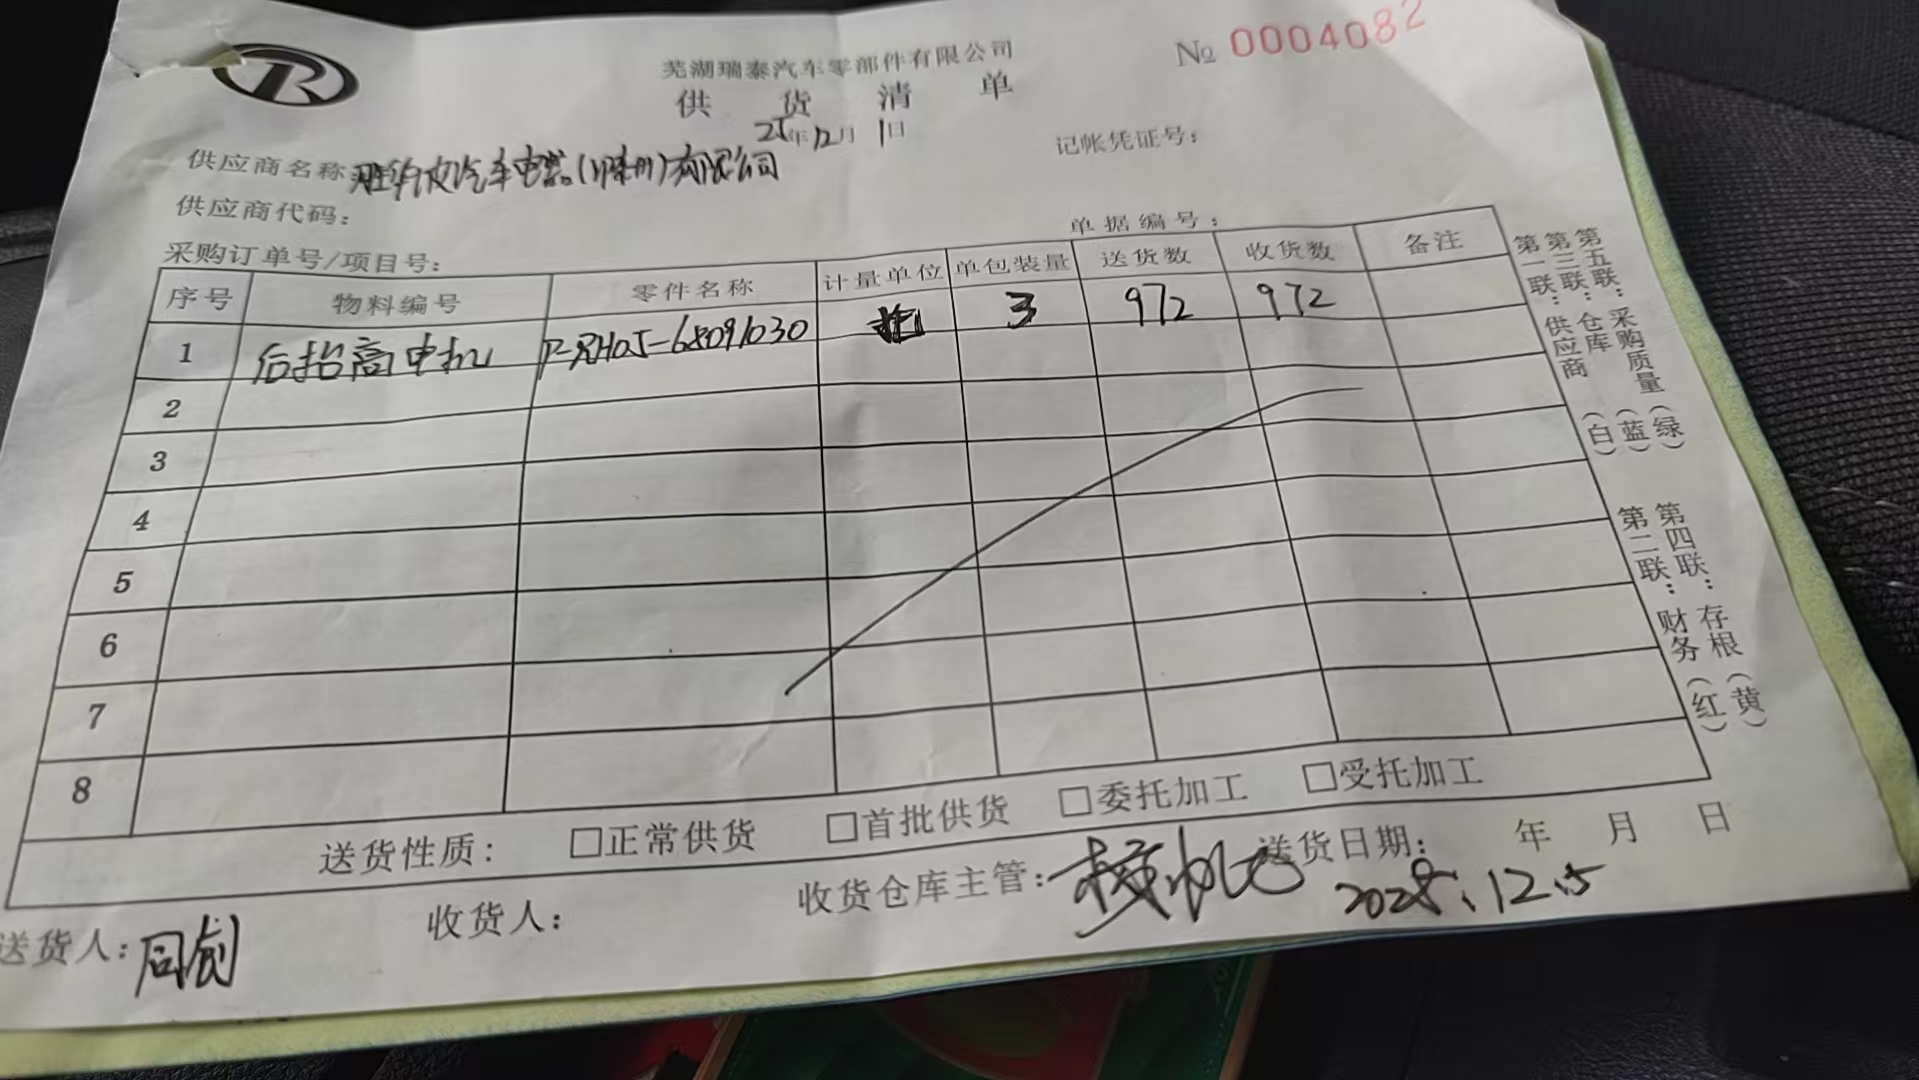 R
芜湖瑞泰汽车零部件有限公司
№ 0004082
供货清单
25年12月1日
供应商名称: 汽车电器(滁州)有限公司
记帐凭证号:
供应商代码:
单据编号:
采购订单号/项目号:
序号 物料编号 零件名称 计量单位 单包装量 送货数 收货数 备注
1 后抬高电机 P-RH05-68091030 托 3 972 972
2
3
4
5
6
7
8
送货性质: □正常供货 □首批供货 □委托加工 □受托加工
送货人: 同创 收货人: 收货仓库主管: 送货日期: 年 月 日
2025.12.5
第一联:供应商(白)
第三联:仓库(蓝)
第五联:采购质量(绿)
第二联:财务(红)
第四联:存根(黄)